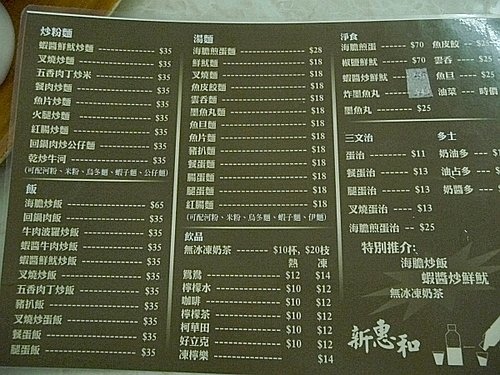 炒粉麵
蝦醬鮮魷炒麵 $35
叉燒炒麵 $35
五香肉丁炒米 $35
餐肉炒麵 $35
魚片炒麵 $35
火腿炒麵 $35
紅腸炒麵 $35
回鍋肉炒公仔麵 $35
乾炒牛河 $35
(可配河粉、米粉、烏冬麵、蝦子麵、公仔麵)
飯
海膽炒飯 $65
回鍋肉飯 $35
牛肉波羅炒飯 $35
蝦醬牛肉炒飯 $35
蝦醬鮮魷炒飯 $35
叉燒炒飯 $35
五香肉丁炒飯 $35
豬扒飯 $35
叉燒炒蛋飯 $35
餐蛋飯 $35
腿蛋飯 $35
湯麵
海膽煎蛋麵 $28
鮮魷麵 $18
叉燒麵 $18
魚皮餃麵 $18
雲吞麵 $18
墨魚丸麵 $18
魚旦麵 $18
魚片麵 $18
豬扒麵 $18
餐蛋麵 $18
腸蛋麵 $18
腿蛋麵 $18
紅腸麵 $18
(可配河粉、米粉、烏冬麵、蝦子麵、伊麵)
飲品
無冰凍奶茶 $10杯, $20枝
熱 凍
鴛鴦 $12 $14
檸檬水 $10 $12
咖啡 $10 $12
檸檬茶 $10 $12
柯華田 $10 $12
好立克 $10 $12
凍檸樂 $14
淨食
海膽煎蛋 $70 魚皮餃 $25
椒鹽鮮魷 $70 雲吞
蝦醬炒鮮魷 魚旦 $25
炸墨魚丸 油菜 時價
墨魚丸 $25
三文治 多士
蛋治 $11 奶油多
餐蛋治 $13 油占多
腿蛋治 $13 奶醬多
叉燒蛋治 $13
海膽煎蛋治 $25
特別推介:
海膽炒飯
蝦醬炒鮮魷
無冰凍奶茶
新惠和